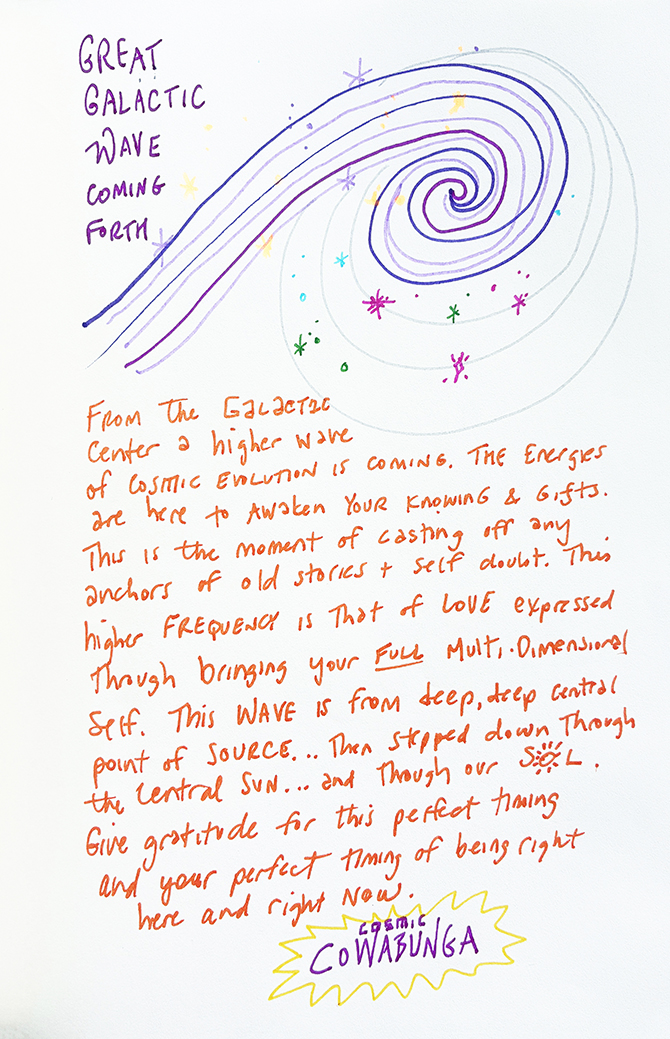 GREAT
GALACTIC
WAVE
COMING
FORTH
From the GalacTic
Center a higher wave
of COSMIC EVOLUTION IS COMING. THE Energies
are here to AWaken YOUR KNOWING & Gifts.
This is the moment of casting off any
anchors of old stories + self doubt. This
higher FREQUENCY is That of LOVE expressed
Through bringing your FULL Multi-Dimensional
Self. This WAVE is from deep, deep central
point of SOURCE... Then stepped down Through
the Central SUN... and Though our SOL.
Give gratitude for this perfect timing
and your perfect timing of being right
here and right Now.
COSMIC
COWABUNGA